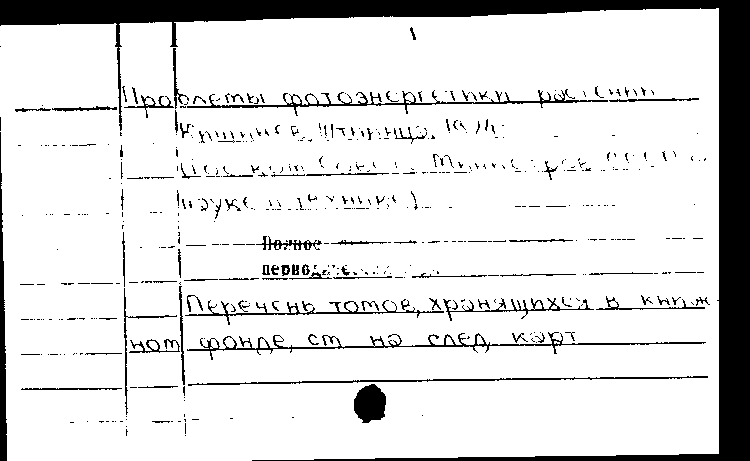 1
Проблемы фотоэнергетики растений
Кишинев, Штиинца, 1974-
(Гос ком Совета Министров СССР по
науке и технике)
Полное
Перечень томов, хранящихся в книж
ном фонде, см на след карт